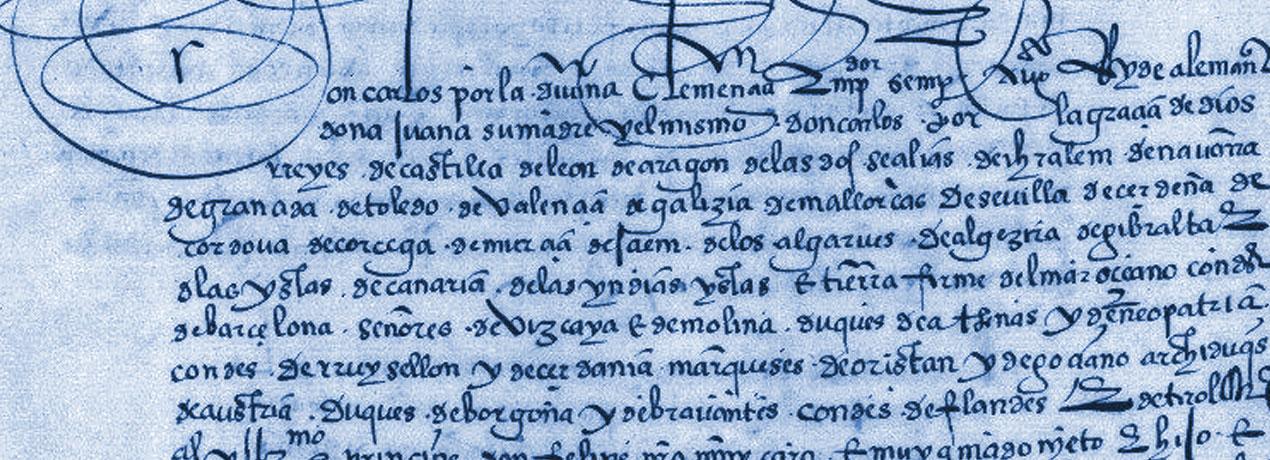 on carlos por la diuina Clemençia Emp dor semp Aug Rey de aleman
dona Juana su madre y el mismo don carlos por la graçia de dios
reyes de castilla de leon de aragon de las dos seçilias de ihrslem de nauarra
de granada de toledo de Valençia de galizia de mallorcas de seuilla de cerdeña de
cordoua de corcega de murçia de Jaem de los algarues de algezira de gibraltar
de las yslas de canaria de las yndias yslas E tierra firme del mar oceano condes
de barcelona señores de Vizcaya E de molina duques de athenas y de neopatria
condes de rruysellon y de cerdania marqueses de oristan y de goçiano archiduqs
de austria duques de borgoña y de brauantes condes de flandes E de tirol
al yllmo principe don felipe nro muy caro E muy amado nieto E hijo E